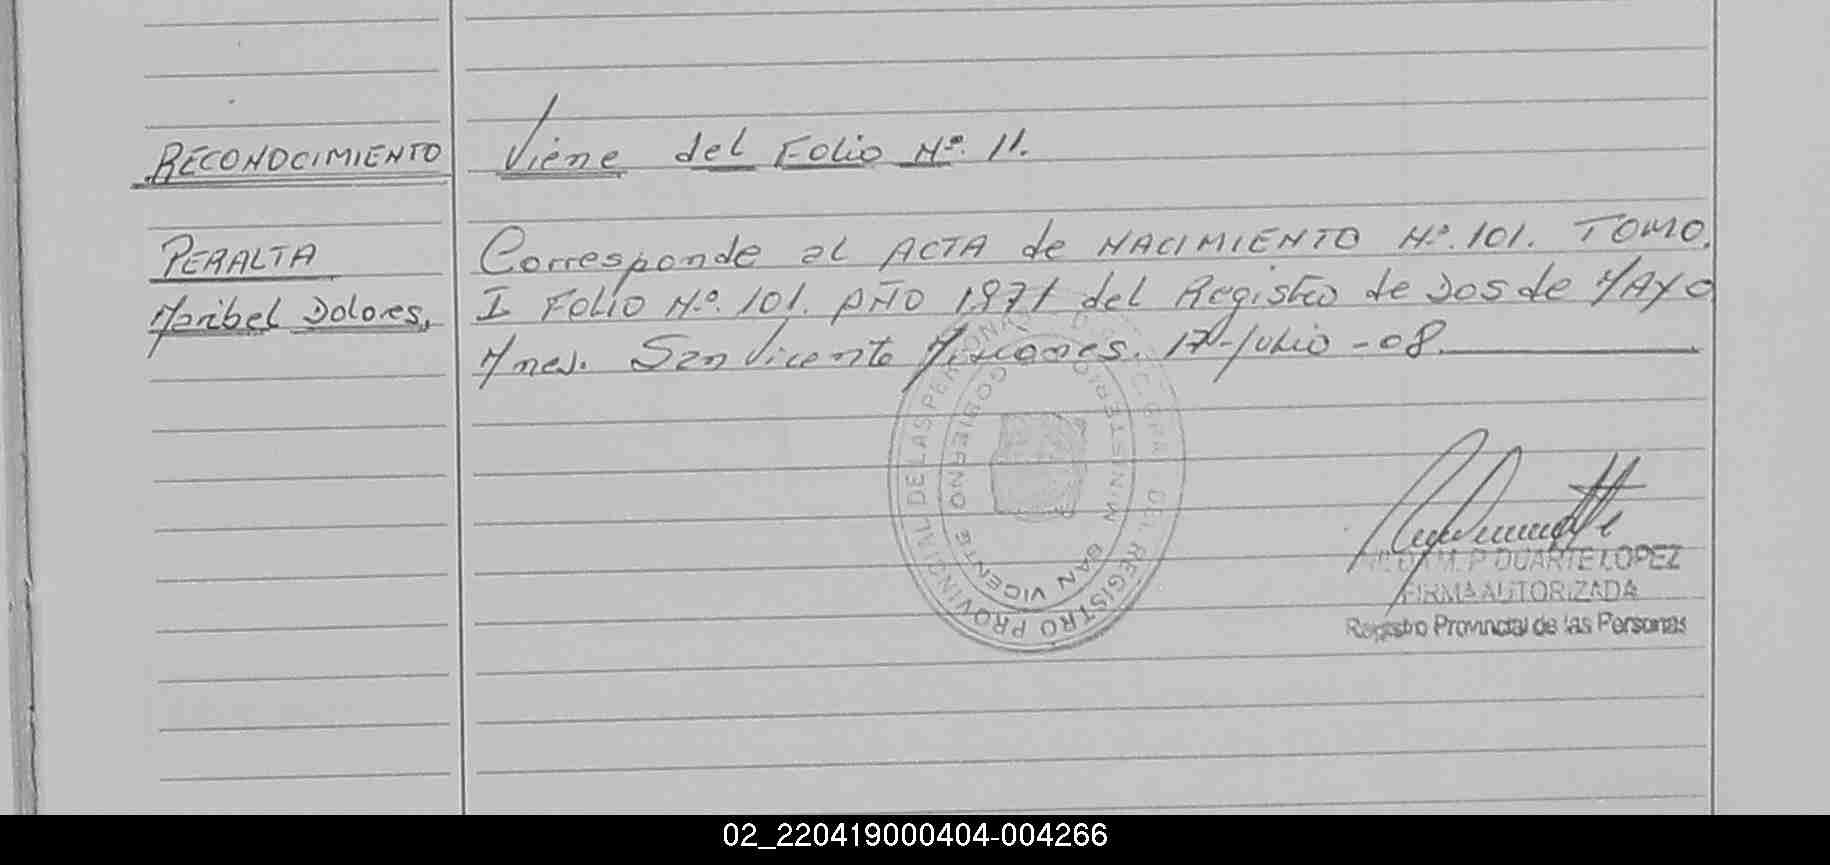 RECONOCIMIENTO Viene del Folio Nº. 11.
PERALTA Corresponde al ACTA de NACIMIENTO Nº. 101. TOMO.
Maribel Dolores, I FOLIO Nº. 101. AÑO 1971 del Registro de Dos de MAYO
Mnes. San Vicente Misiones. 17-Julio-08.
REGISTRO PROVINCIAL DE LAS PERSONAS
MINISTERIO GOBIERNO
SAN VICENTE
M. P. DUARTE LOPEZ
FIRMA AUTORIZADA
Registro Provincial de las Personas
02_220419000404-004266